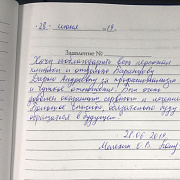 "28" июня 19
Заявление №
Хочу поблагодарить весь персонал
клиники и отдельно
Дарью Андреевну за профессионализм
и чуткое отношение. Я очень
доволен оказанным сервисом и лечением
Большое спасибо, обязательно буду
обращаться в будущем.
28.06.2019,